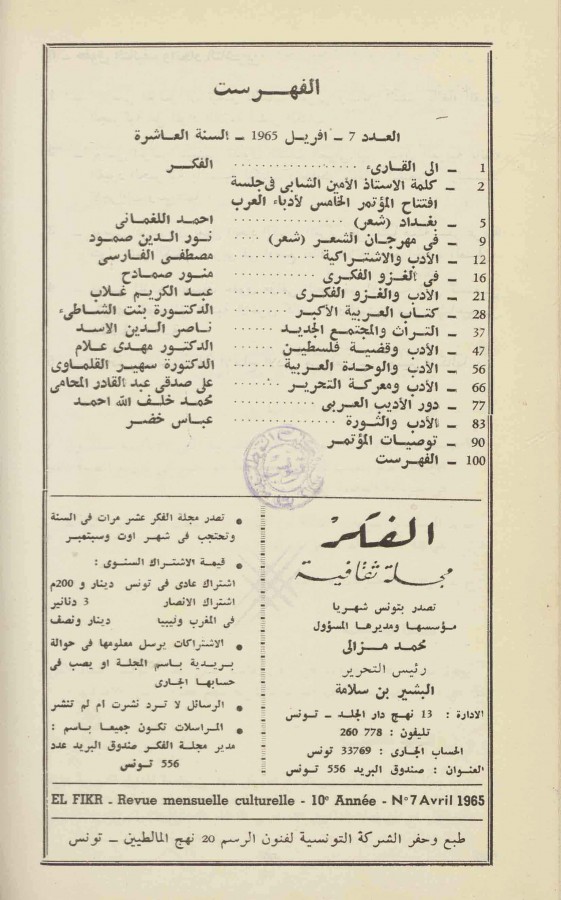 الفهرست
العدد 7 – افريل 1965 – السنة العاشرة
1 – الى القارىء ........ الفكر
2 – كلمة الاستاذ الأمين الشابى فى جلسة
افتتاح المؤتمر الخامس لأدباء العرب
5 – بغداد (شعر) ........ احمد اللغمانى
9 – فى مهرجان الشعر (شعر) ..... نور الدين صمود
12 – الأدب والاشتراكية ........ مصطفى الفارسى
16 – فى الغزو الفكرى ........ منور صمادح
21 – الأدب والغزو الفكرى ........ عبد الكريم غلاب
28 – كتاب العربية الأكبر ........ الدكتورة بنت الشاطىء
37 – التراث والمجتمع الجديد ..... ناصر الدين الاسد
47 – الأدب وقضية فلسطين ..... الدكتور مهدى علام
56 – الأدب والوحدة العربية ..... الدكتورة سهير القلماوى
66 – الأدب ومعركة التحرير ..... على صدقى عبد القادر المحامى
77 – دور الأديب العربى ........ محمد خلف الله احمد
83 – الأدب والثورة ........ عباس خضر
90 – توصيات المؤتمر
100 – الفهرست
الفكر
مجلة ثقافية
تصدر بتونس شهريا
مؤسسها ومديرها المسؤول
محمد مزالى
رئيس التحرير
البشير بن سلامة
الادارة : 13 نهج دار الجلد – تونس
تليفون : 778 260
الحساب الجارى : 33769 تونس
العنوان : صندوق البريد 556 تونس
• تصدر مجلة الفكر عشر مرات فى السنة
وتحتجب فى شهر اوت وسبتمبر
• قيمة الاشتراك السنوى :
اشتراك عادى فى تونس دينار و 200م
اشتراك الانصار 3 دنانير
فى المغرب وليبيا دينار ونصف
• الاشتراكات يرسل معلومها فى حوالة
بريدية باسم المجلة او يصب فى
حسابها الجارى
• الرسائل لا ترد نشرت ام لم تنشر
• المراسلات تكون جميعا باسم :
مدير مجلة الفكر صندوق البريد عدد
556 تونس
EL FIKR - Revue mensuelle culturelle - 10e Année - N°7 Avril 1965
طبع وحفر الشركة التونسية لفنون الرسم 20 نهج المالطيين – تونس